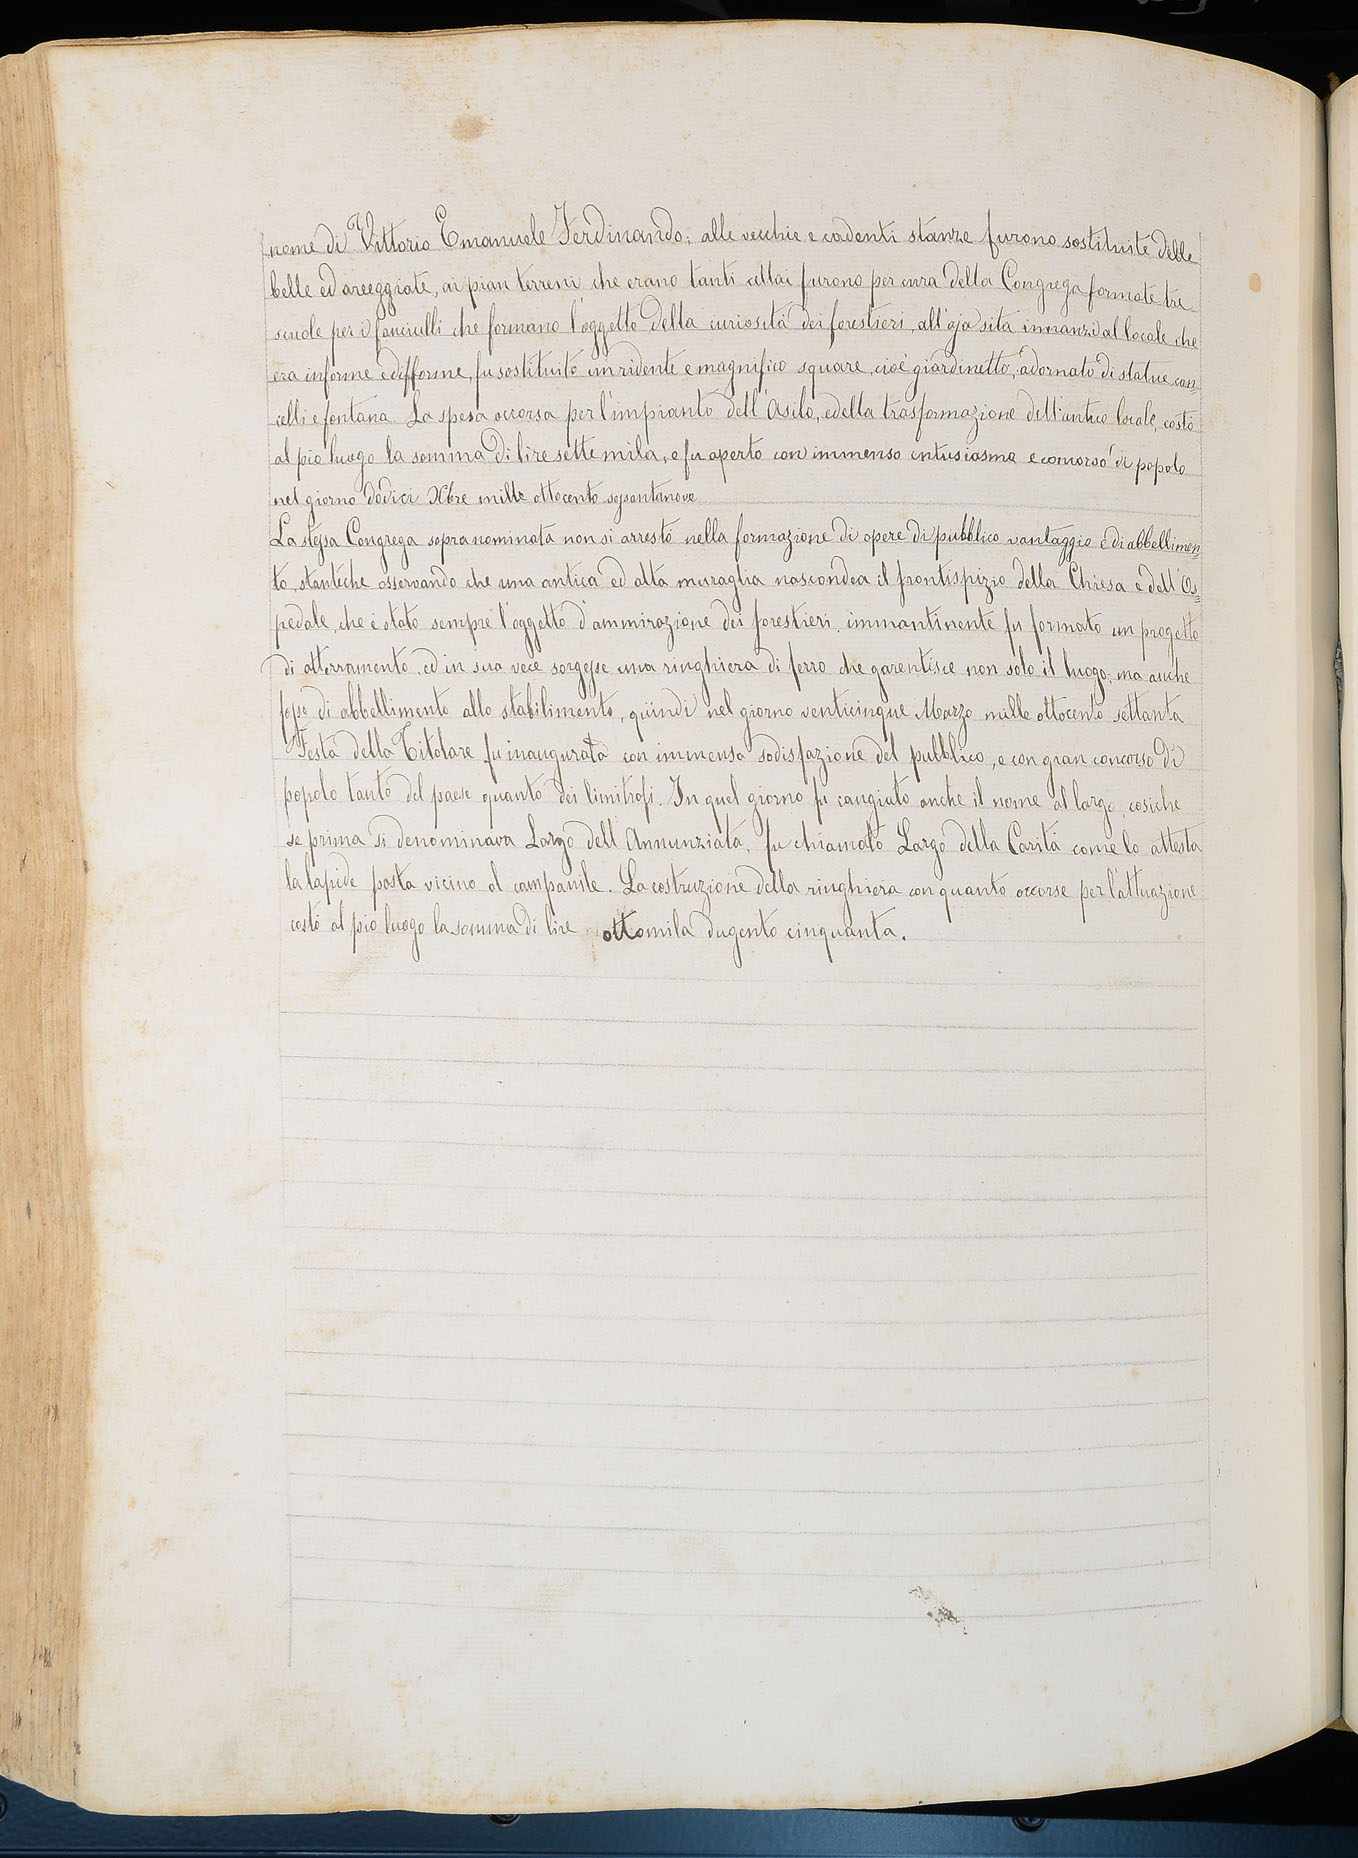 nome di Vittorio Emanuele Ferdinando; alle vecchie e cadenti stanze furono sostituite delle
belle ed areeggiate, ai pian terreni che erano tanti cellai furono per cura della Congrega formate tre
scuole per i fanciulli che formano l'oggetto della curiosità dei forestieri, all'aja sita innanzi al locale che
era informe e difforme, fu sostituito un ridente e magnifico square, cioè giardinetto, adornato di statue can=
celli e fontana. La spesa occorsa per l'impianto dell'Asilo, e della trasformazione dell'antico locale, costò
al pio luogo la somma di lire sette mila, e fu aperto con immenso entusiasmo e concorso di popolo
nel giorno dodici Xbre mille ottocento sessantanove
La stessa Congrega sopranominata non si arrestò nella formazione di opere di pubblico vantaggio e di abbellimen=
to, stantechè osservando che una antica ed alta muraglia nascondea il frontispizio della Chiesa e dell'Os=
pedale, che è stato sempre l'oggetto d'ammirazione dei forestieri, immantinente fu formato un progetto
di atterramento, ed in sua vece sorgesse una ringhiera di ferro che garentisce non solo il luogo; ma anche
fosse di abbellimento allo stabilimento, quindi nel giorno venticinque Marzo mille ottocento settanta
Festa della Titolare fu inaugurata con immensa sodisfazione del pubblico, e con gran concorso di
popolo tanto del paese quanto dei limitrofi. In quel giorno fu cangiato anche il nome al largo, cosiche
se prima si denominava Largo dell'Annunziata, fu chiamato Largo della Carità come lo attesta
la lapide posta vicino al campanile. La costruzione della ringhiera con quanto occorse per l'attuazione
costò al pio luogo la somma di lire ottomila dugento cinquanta.